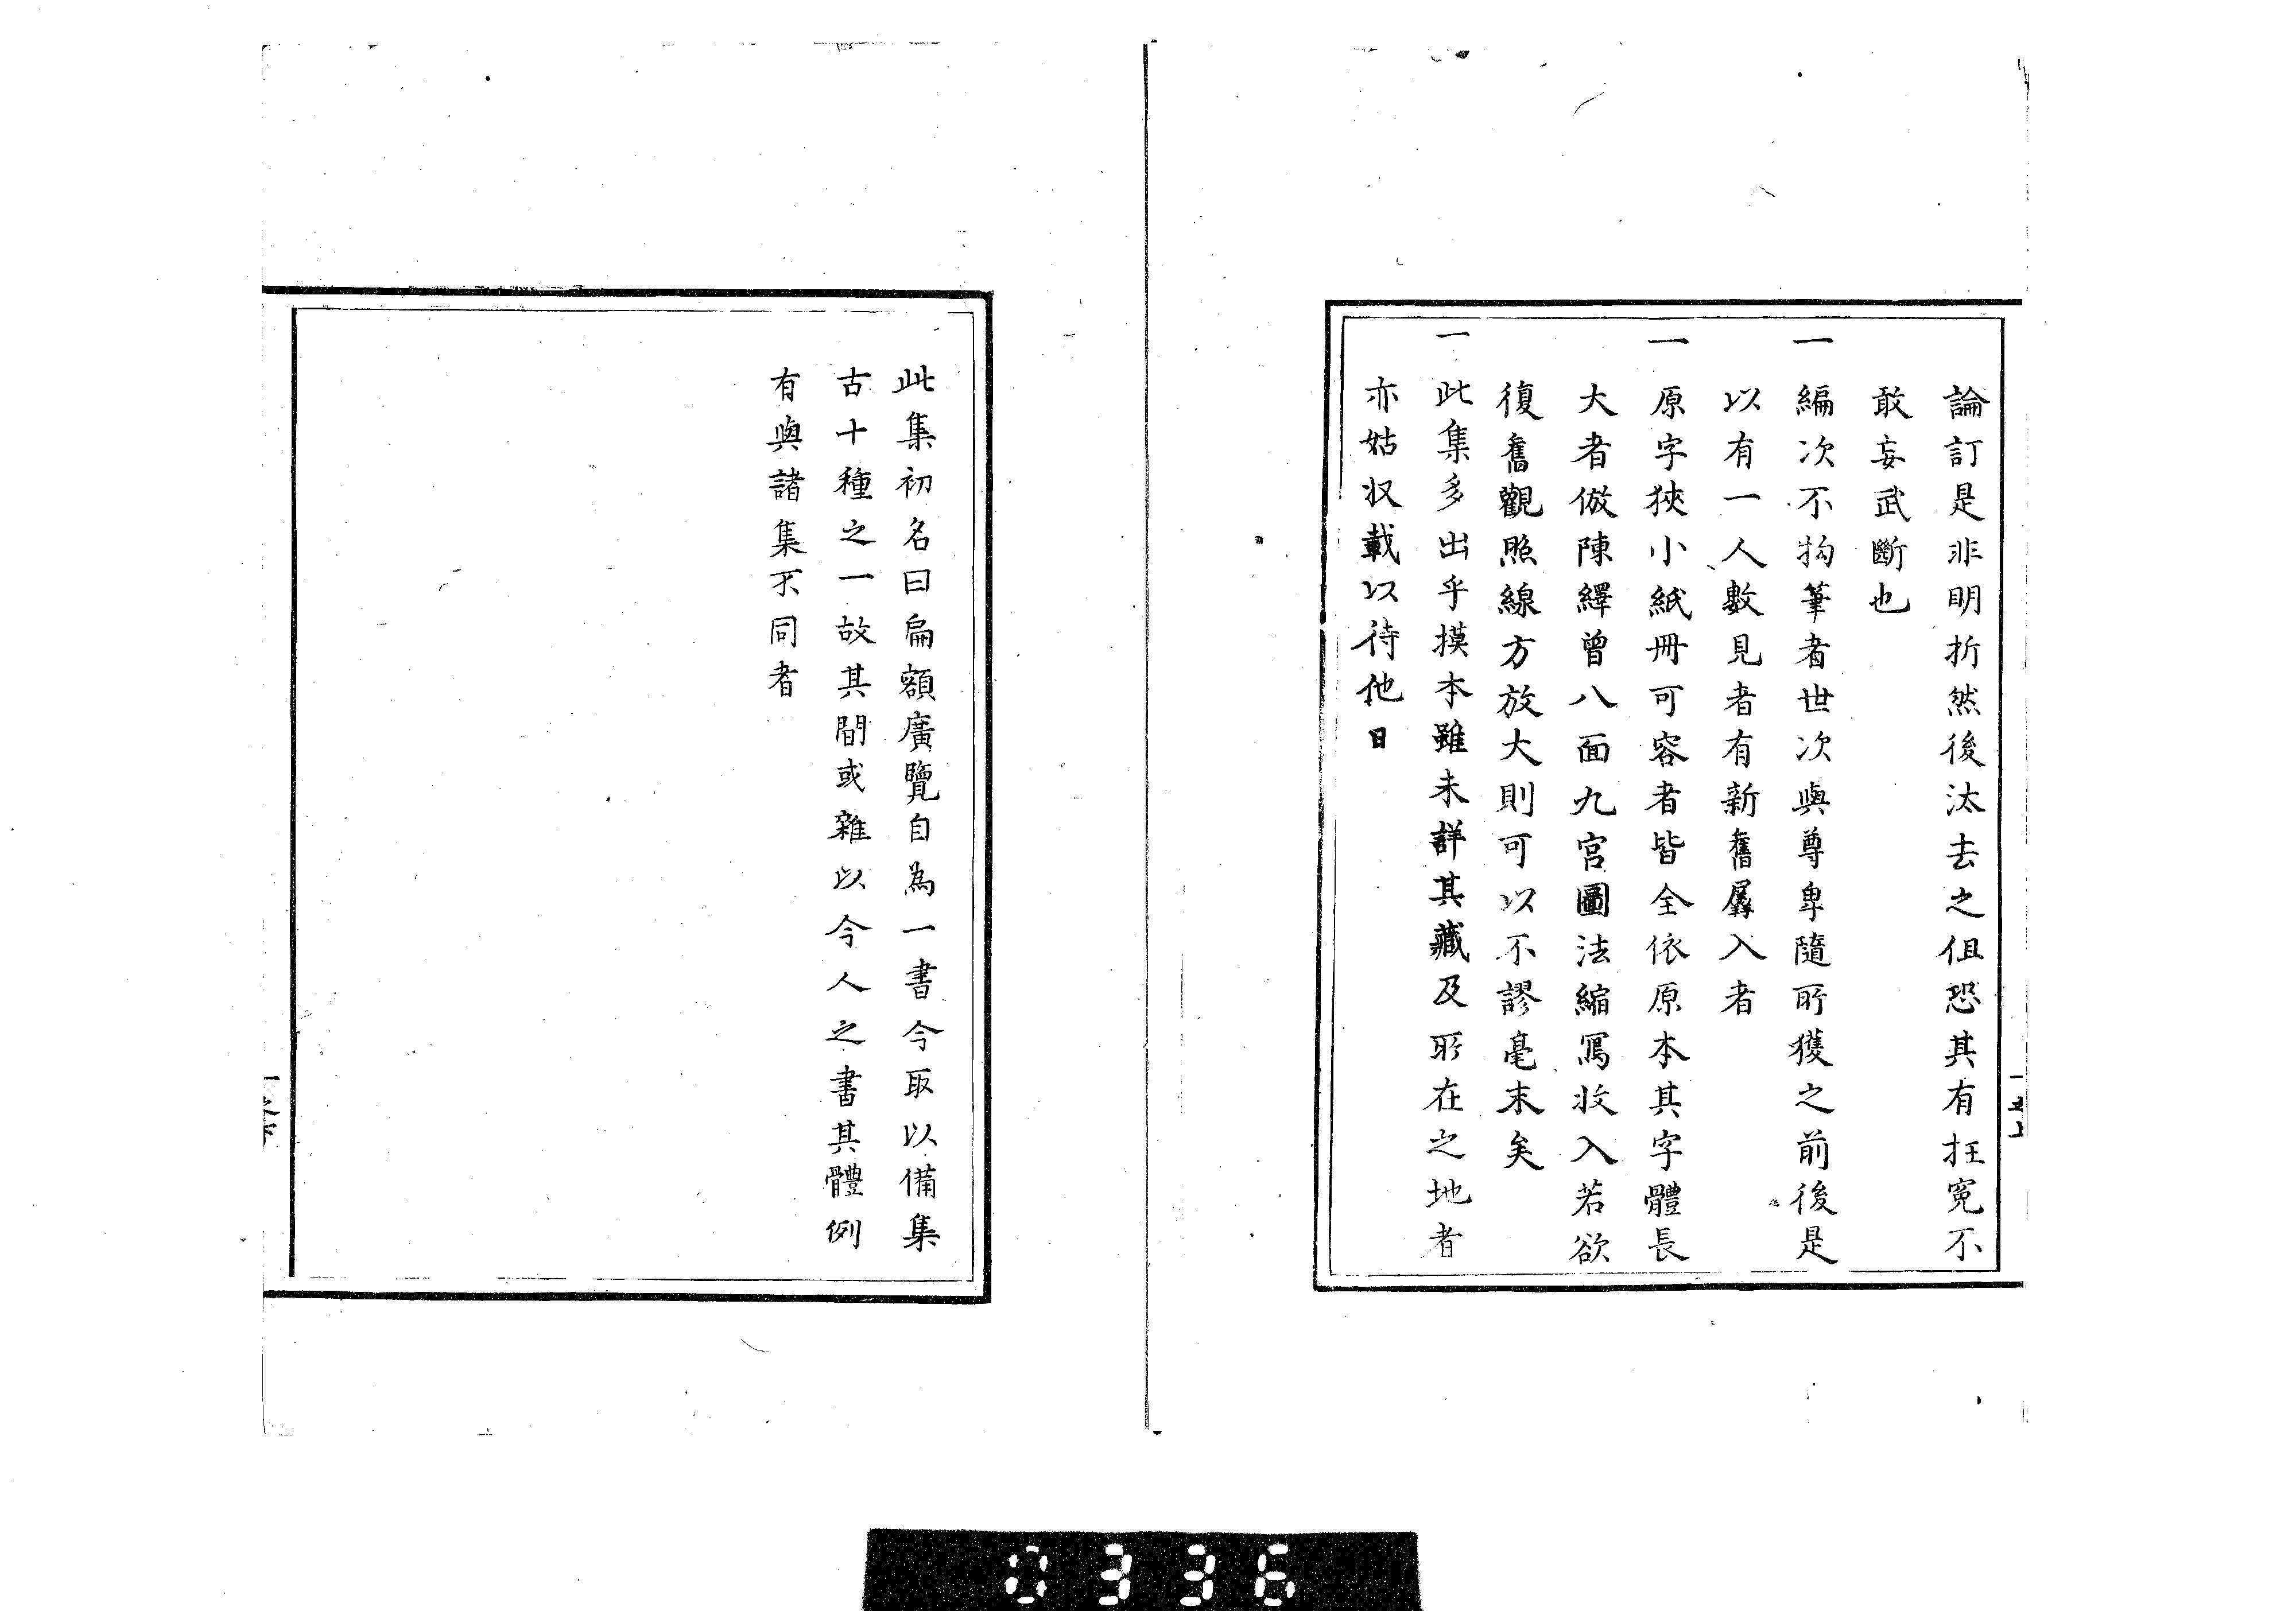 論訂是非明折然後汰去之但恐其有抂冤不
敢妄武斷也
一編次不拘筆者世次與尊卑隨所獲之前後是
以有一人數見者有新舊羼入者
一原字狹小紙冊可容者皆全依原本其字體長
大者倣陳繹曾八面九宮圖法縮寫收入若欲
復舊觀照線方放大則可以不謬毫末矣
一此集多出乎摸本雖未詳其藏及所在之地者
亦姑収載以待他日
此集初名曰扁額廣覽自為一書今取以備集
古十種之一故其間或雜以今人之書其體例
有與諸集不同者
0336